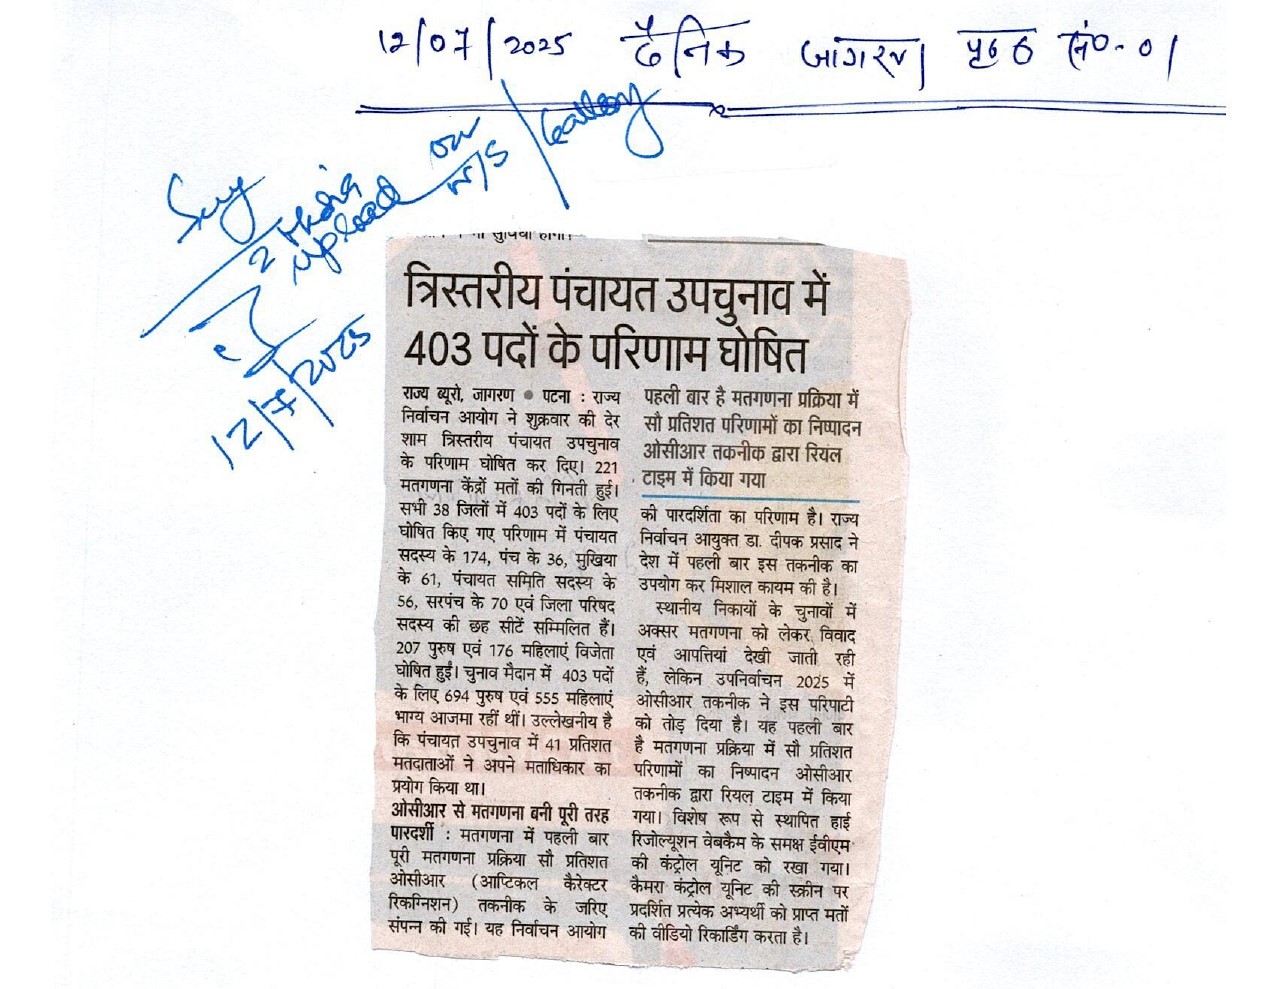 12/07/2025 दैनिक जागरण पृष्ठ सं०-01
on
W/S / Gallery
Media
upload
12/7/2025
सुविधा होगी।
त्रिस्तरीय पंचायत उपचुनाव में
403 पदों के परिणाम घोषित
राज्य ब्यूरो, जागरण ● पटना : राज्य
निर्वाचन आयोग ने शुक्रवार की देर
शाम त्रिस्तरीय पंचायत उपचुनाव
के परिणाम घोषित कर दिए। 221
मतगणना केंद्रों मतों की गिनती हुई।
सभी 38 जिलों में 403 पदों के लिए
घोषित किए गए परिणाम में पंचायत
सदस्य के 174, पंच के 36, मुखिया
के 61, पंचायत समिति सदस्य के
56, सरपंच के 70 एवं जिला परिषद
सदस्य की छह सीटें सम्मिलित हैं।
207 पुरुष एवं 176 महिलाएं विजेता
घोषित हुईं। चुनाव मैदान में 403 पदों
के लिए 694 पुरुष एवं 555 महिलाएं
भाग्य आजमा रहीं थीं। उल्लेखनीय है
कि पंचायत उपचुनाव में 41 प्रतिशत
मतदाताओं ने अपने मताधिकार का
प्रयोग किया था।
ओसीआर से मतगणना बनी पूरी तरह
पारदर्शी : मतगणना में पहली बार
पूरी मतगणना प्रक्रिया सौ प्रतिशत
ओसीआर (आप्टिकल कैरेक्टर
रिकग्निशन) तकनीक के जरिए
संपन्न की गई। यह निर्वाचन आयोग
पहली बार है मतगणना प्रक्रिया में
सौ प्रतिशत परिणामों का निष्पादन
ओसीआर तकनीक द्वारा रियल
टाइम में किया गया
की पारदर्शिता का परिणाम है। राज्य
निर्वाचन आयुक्त डा. दीपक प्रसाद ने
देश में पहली बार इस तकनीक का
उपयोग कर मिशाल कायम की है।
स्थानीय निकायों के चुनावों में
अक्सर मतगणना को लेकर विवाद
एवं आपत्तियां देखी जाती रही
हैं, लेकिन उपनिर्वाचन 2025 में
ओसीआर तकनीक ने इस परिपाटी
को तोड़ दिया है। यह पहली बार
है मतगणना प्रक्रिया में सौ प्रतिशत
परिणामों का निष्पादन ओसीआर
तकनीक द्वारा रियल टाइम में किया
गया। विशेष रूप से स्थापित हाई
रिजोल्यूशन वेबकैम के समक्ष ईवीएम
की कंट्रोल यूनिट को रखा गया।
कैमरा कंट्रोल यूनिट की स्क्रीन पर
प्रदर्शित प्रत्येक अभ्यर्थी को प्राप्त मतों
की वीडियो रिकार्डिंग करता है।